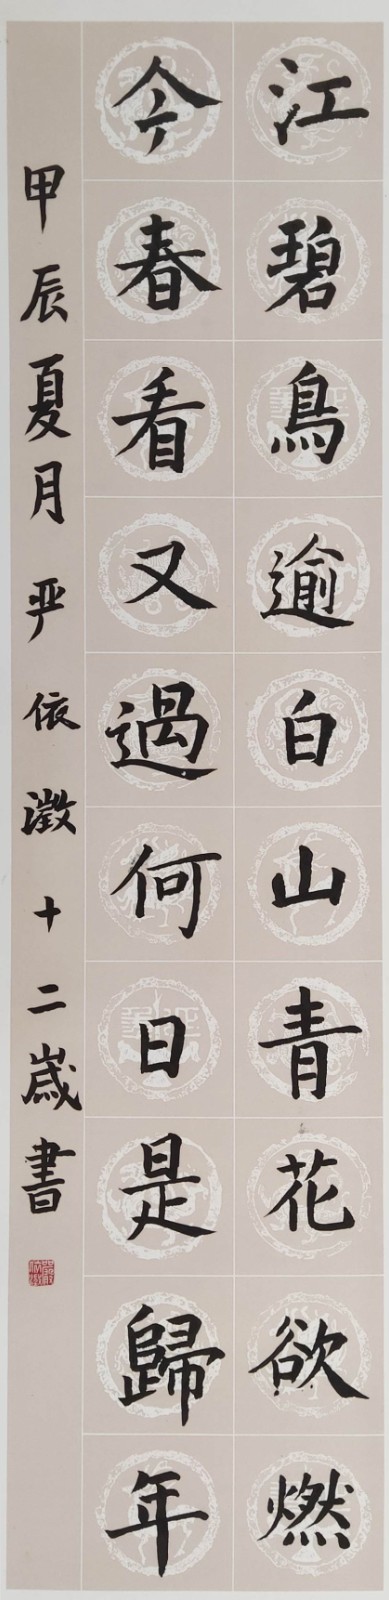 江碧鳥逾白山青花欲燃
今春看又過何日是歸年
甲辰夏月严依澂十二歲書